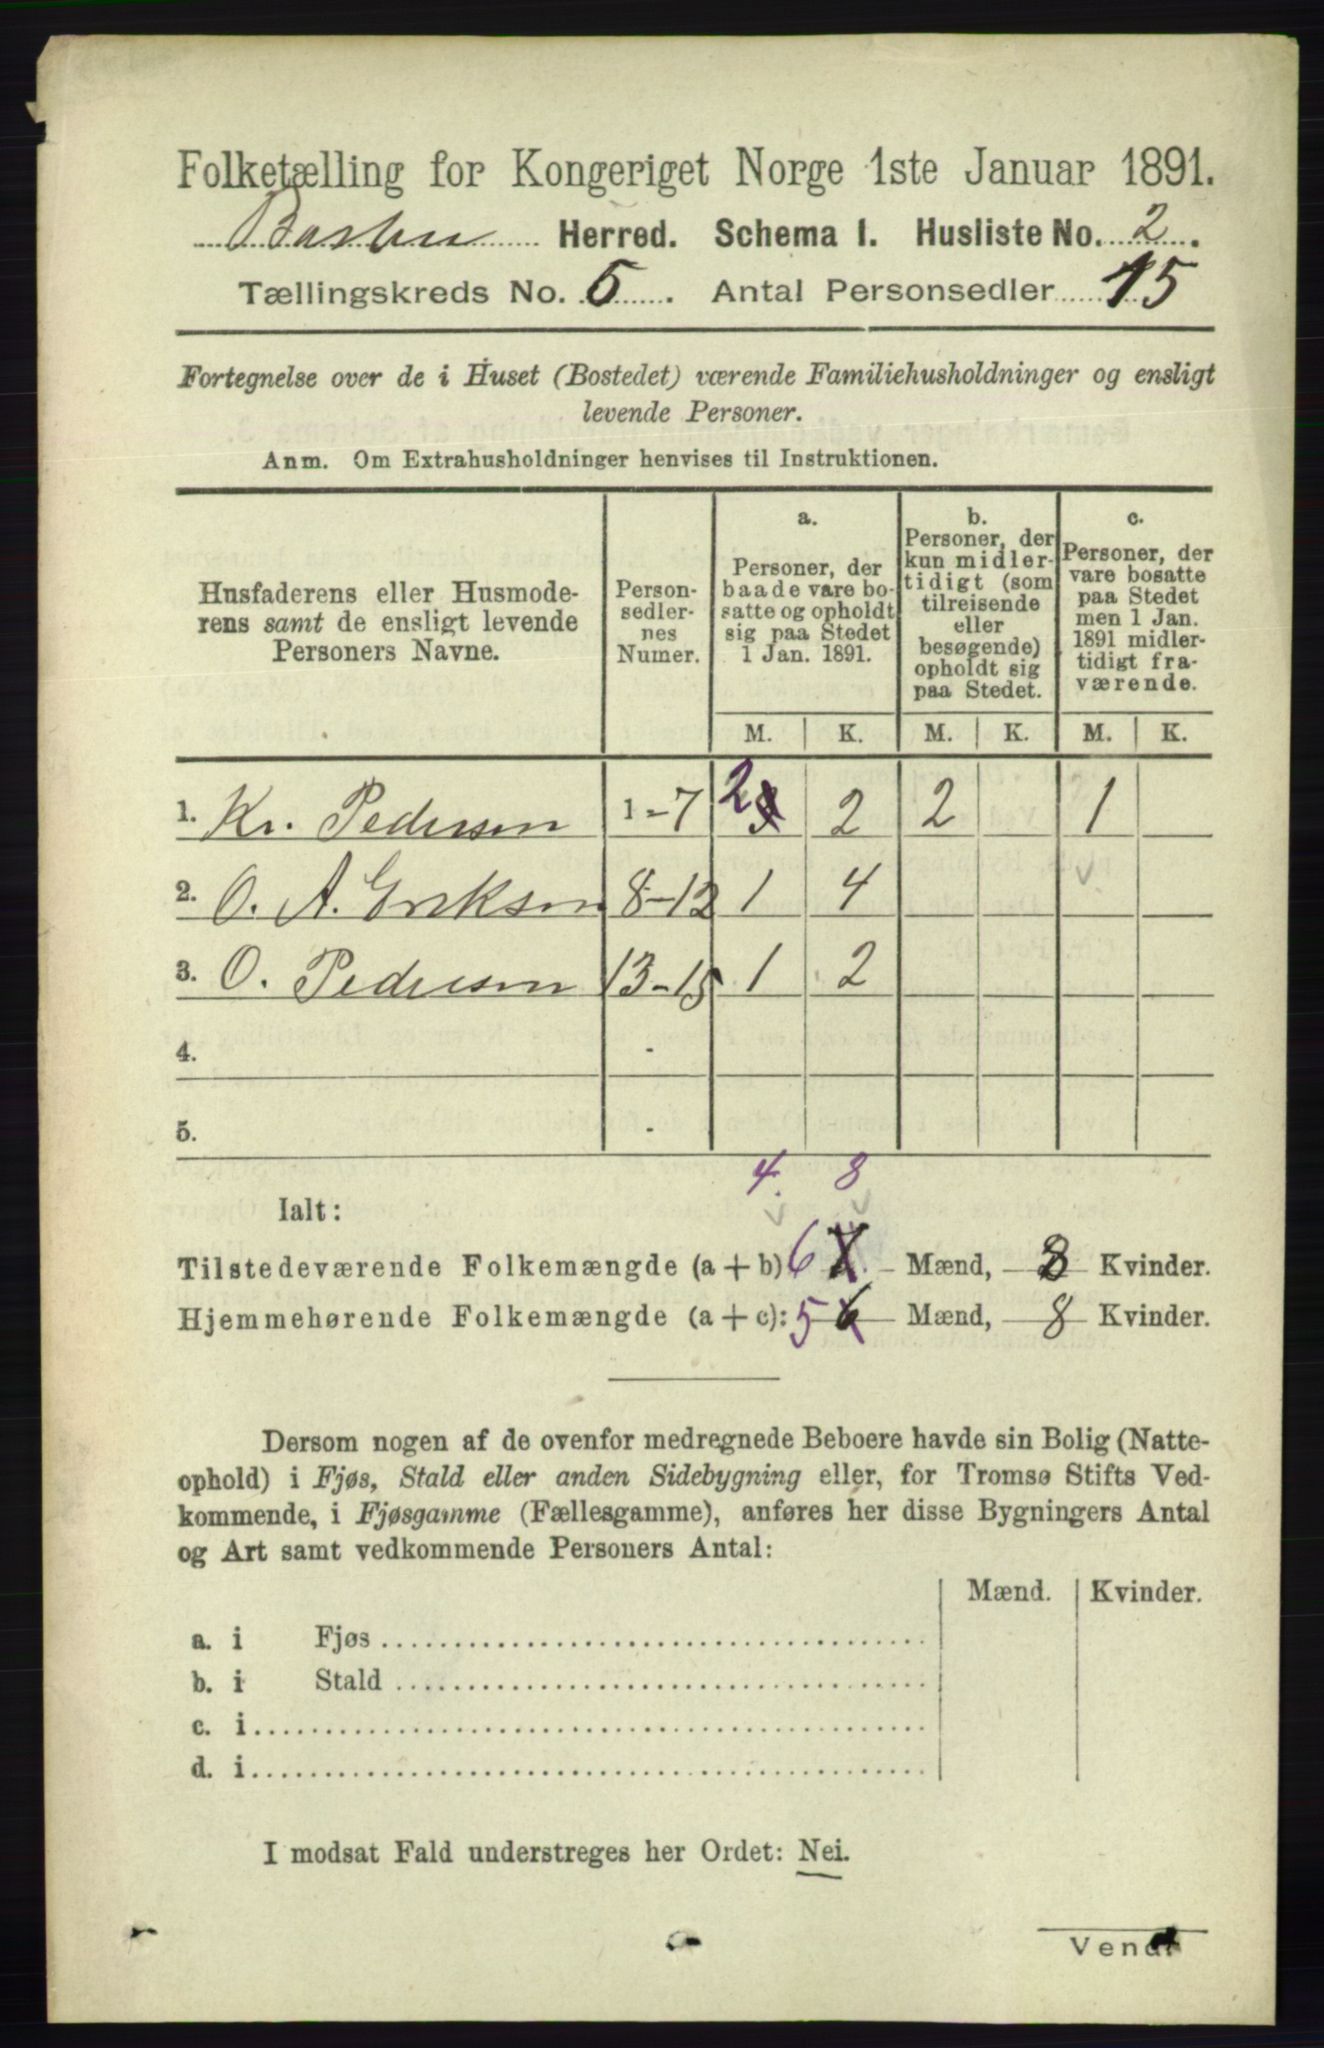 Folketælling for Kongeriget Norge 1ste Januar 1891.
Barbu Herred. Schema I. Husliste No. 2.
Tællingskreds No. 5. Antal Personsedler 15
Fortegnelse over de i Huset (Bostedet) værende Familiehusholdninger og ensligt
levende Personer.
Anm. Om Extrahusholdninger henvises til Instruktionen.
Husfaderens eller Husmode-
rens samt de ensligt levende
Personers Navne.
Person-
sedler-
nes
Numer.
a.
Personer, der
baade vare bo-
satte og opholdt
sig paa Stedet
1 Jan. 1891.
b.
Personer, der
kun midler-
tidigt (som
tilreisende
eller
besøgende)
opholdt sig
paa Stedet.
c.
Personer, der
vare bosatte
paa Stedet
men 1 Jan.
1891 midler-
tidigt fra-
værende.
M. K. M. K. M. K.
1. Kr. Pedersen 1-7 2 3 2 2 1
2. O. A. Eriksen 8-12 1 4
3. O. Pedersen 13-15 1 2
4. -
5. -
4. 8
Ialt:
Tilstedeværende Folkemængde (a + b) 6 7 Mænd, 8 Kvinder.
Hjemmehørende Folkemængde (a + c): 5 6 Mænd, 8 Kvinder.
Dersom nogen af de ovenfor medregnede Beboere havde sin Bolig (Natte-
ophold) i Fjøs, Stald eller anden Sidebygning eller, for Tromsø Stifts Ved-
kommende, i Fjøsgamme (Fællesgamme), anføres her disse Bygningers Antal
og Art samt vedkommende Personers Antal:
Mænd. Kvinder.
a. i Fjøs
b. i Stald
c. i
d. i
I modsat Fald understreges her Ordet: Nei.
Vend!